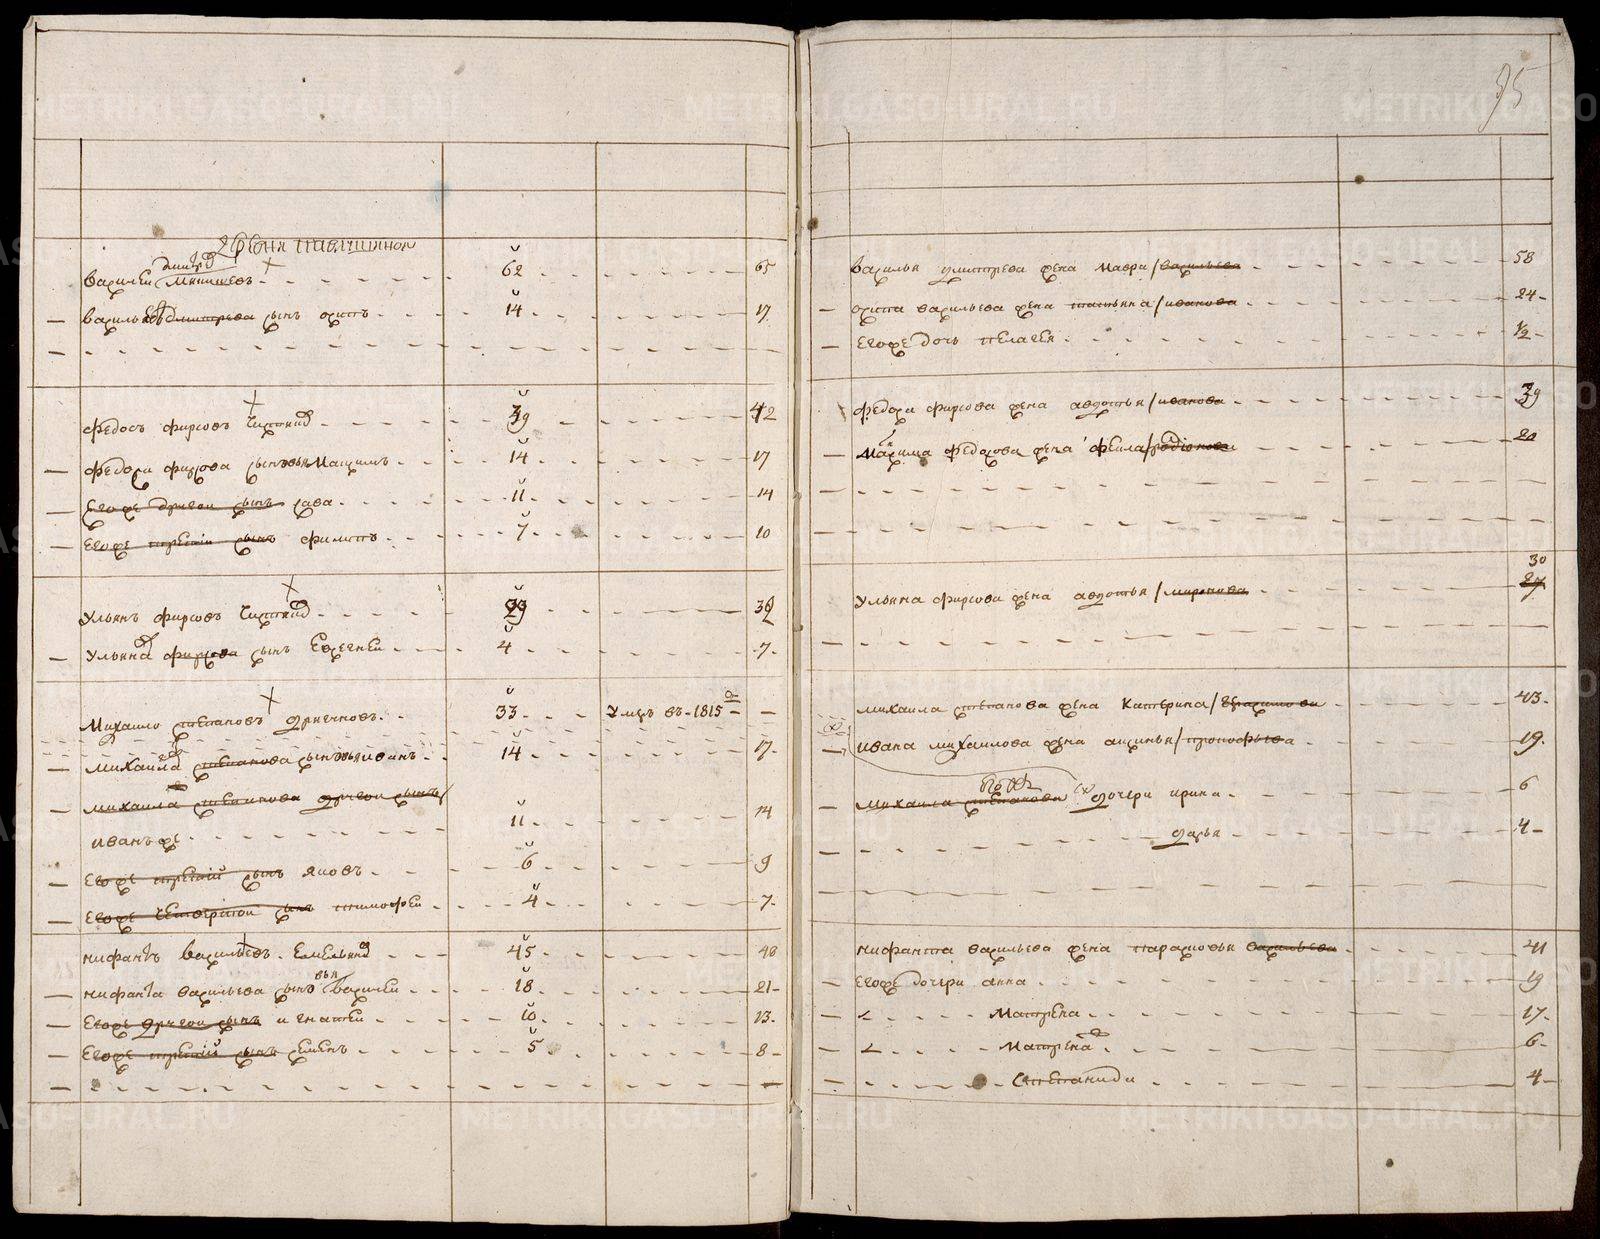 METRIKI.GASO-URAL.RU
95
Деревня
Василей Дмитр 62 65
Василья Дмитрева сынъ осипъ 14 17
Федосъ фирсовъ 39 42
Федоса фирсова сынъ Максимъ 14 17
Егоже другой сынъ сава 11 14
Егоже третий сынъ филипъ 7 10
Ульянъ фирсовъ 33 36
Ульяна фирсова сынъ Евсегней 4 7
Михайло степановъ 33 Умръ въ 1815
Михаила степанова сынъ иванъ 14 17
Михаила степанова другой сынъ
иванъ же 11 14
Егоже третий сынъ яковъ 6 9
Егоже четвертой сынъ тимофей 4 7
нифантъ васильевъ 45 48
нифанта васильева сынъ василей 18 21
Егоже другой сынъ игнатей 10 13
Егоже третий сынъ семенъ 5 8
Василья дмитрева жена мавра васильева 58
осипа васильева жена татьяна иванова 24
Егоже дочь пелагея 1/2
федоса фирсова жена авдотья иванова 39
Максима федосова жена родионова 20
30
Ульяна фирсова жена авдотья миронова 27
михаила степанова жена катерина 43
ивана михаилова жена аксинья прокофьева 19
михаила степанова дочери ирина 6
дарья 4
нифанта васильева жена парасковья васильева 41
Егоже дочери анна 19
Матрена 17
Матрена 6
Степанида 4